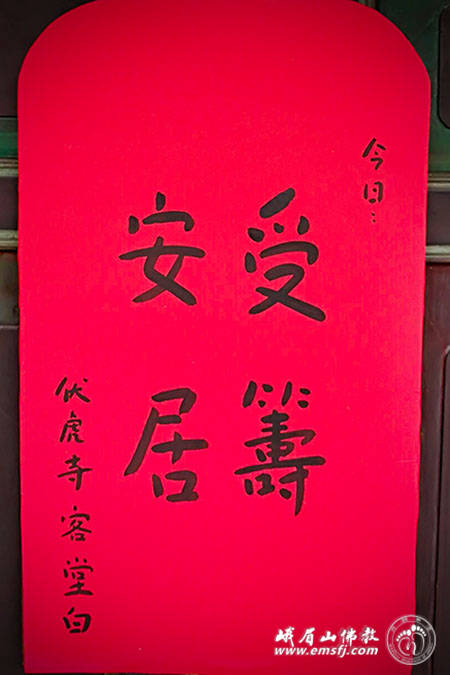 今日：
受籌
安居
伏虎寺客堂白
峨眉山佛教
www.emsfj.com